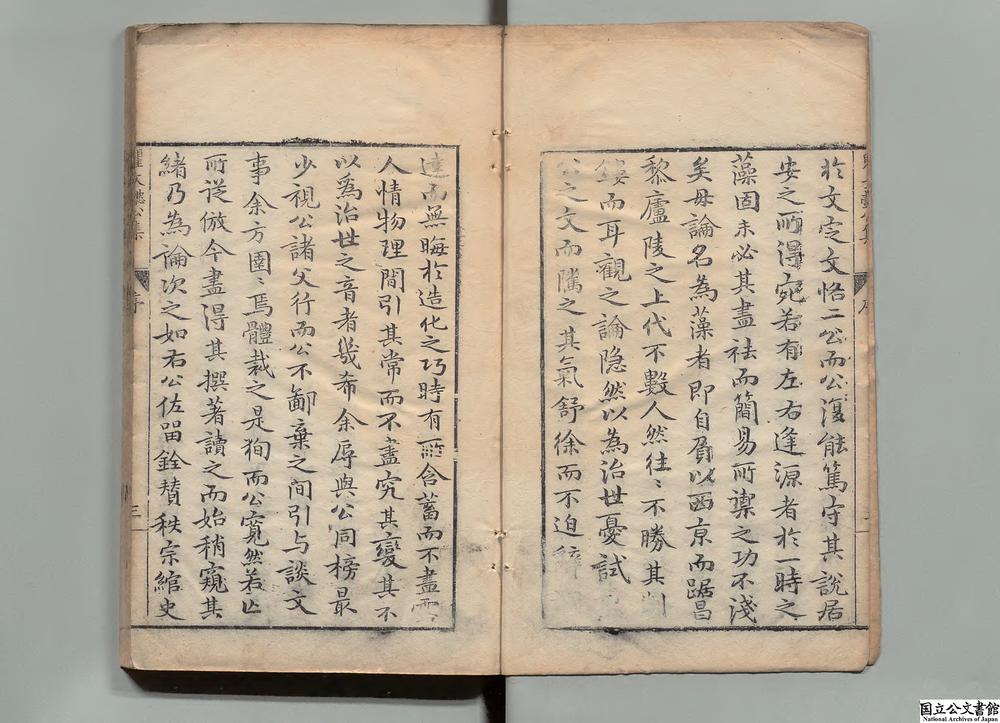 於文定文恪二公而公復能篤守其說居
安之所得宛若有左右逢源者於一時之
藻固未必其盡祛而簡易所稟之功不淺
矣毋論名為藻者即自負以西京而踞昌
黎廬陵之上代不數人然往〻不勝其
而耳觀之論隐然以為治世憂試
公之文而隲之其氣舒徐而不迫辭
達而無晦於造化之巧時有所含蓄而不盡
人情物理間引其常而不盡究其變其不
以為治世之音者幾希余辱與公同榜最
少視公諸父行而公不鄙棄之间引与談文
事余方圄〻焉體裁之是狥而公寬然若亡
所從倣今盡得其撰著讀之而始稍窺其
緒乃為論次之如右公佐畱銓贊秩宗綰史
序
三
国立公文書館
National Archives of Japan